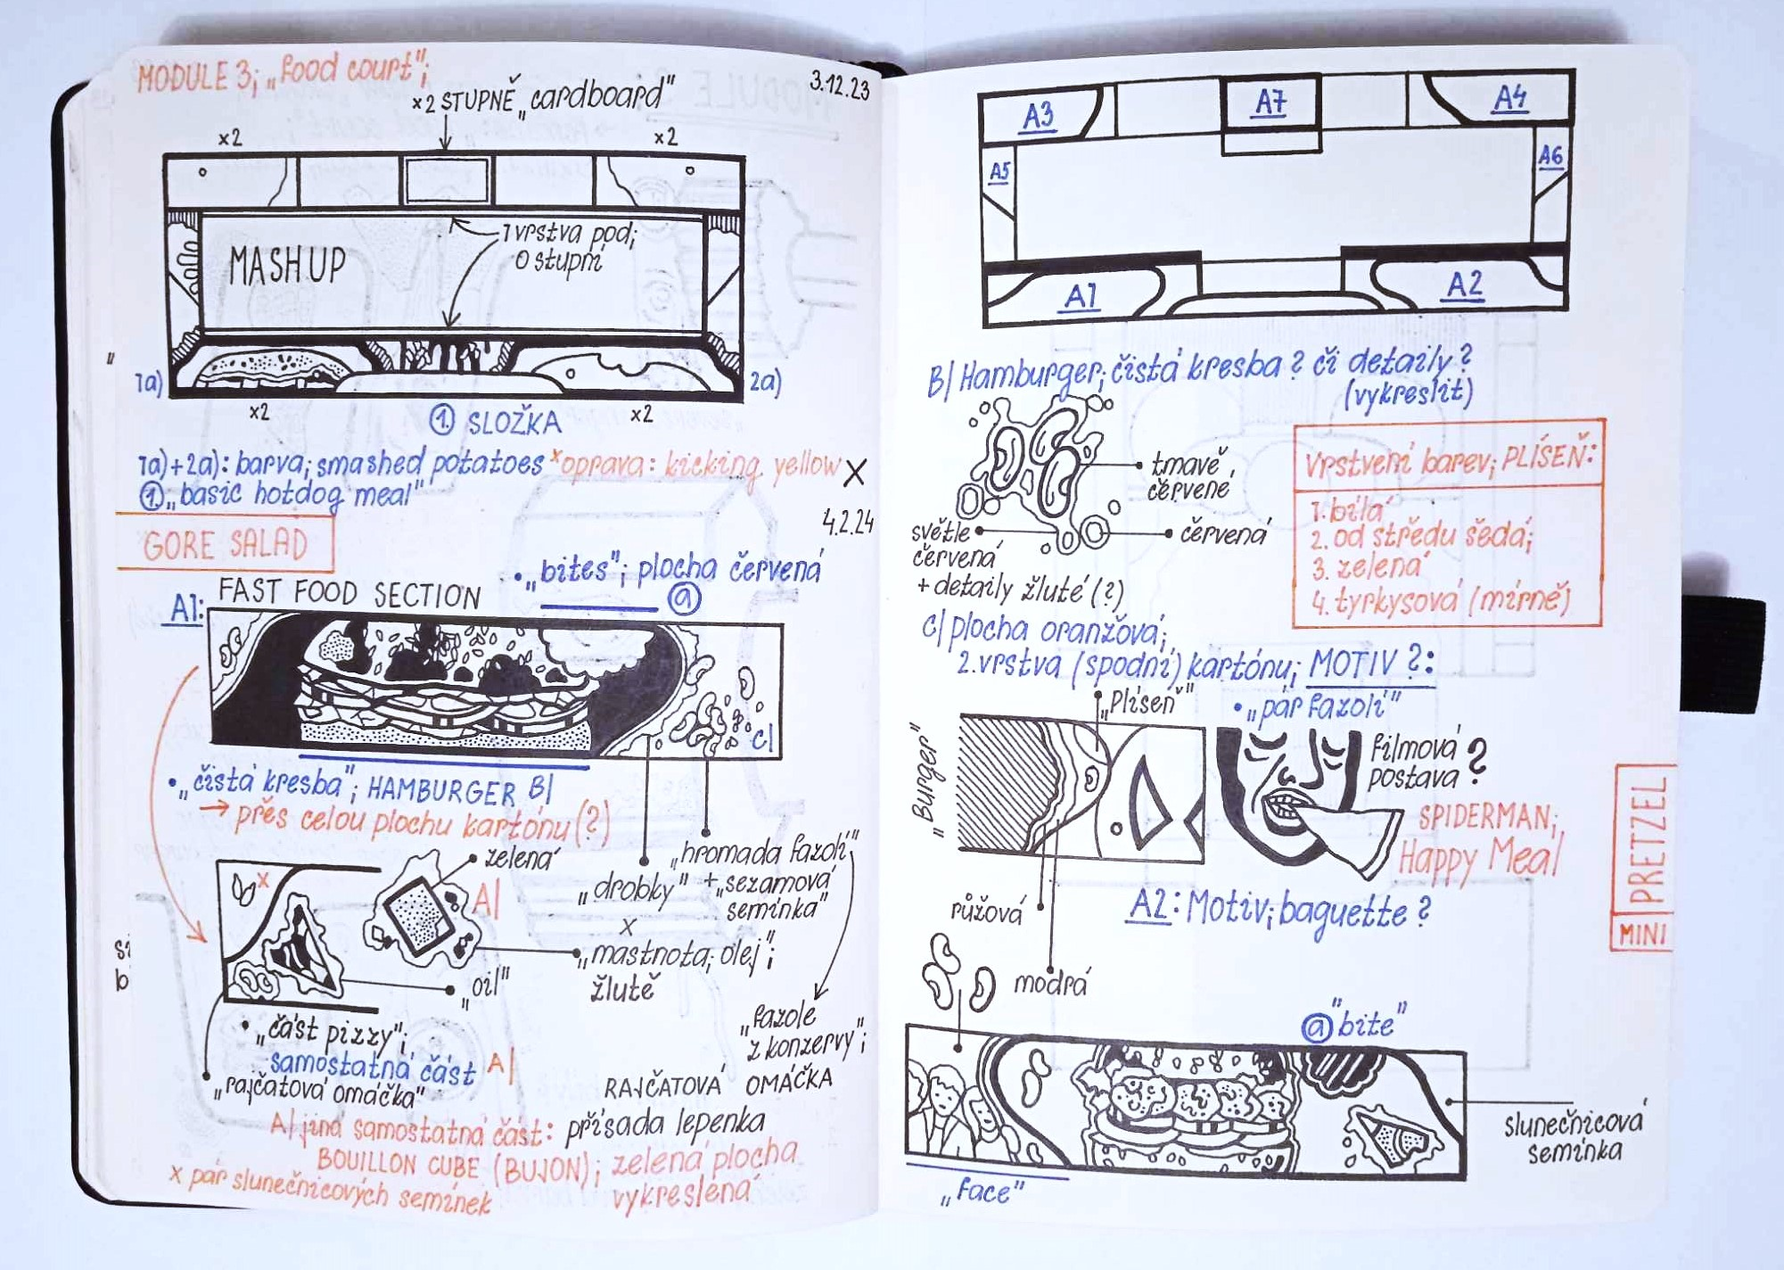 MODULE 3; „food court";
3.12.23
×2 STUPNĚ „cardboard"
×2
×2
1 vrstva pod;
0 stupni
MASH UP
1a)
2a)
×2
×2
① SLOŽKA
1a)+2a): barva; smashed potatoes ×oprava: kicking yellow X
① „basic hotdog meal"
4.2.24
GORE SALAD
• „bites"; plocha červená
ⓐ
FAST FOOD SECTION
A1:
C|
• „čistá kresba"; HAMBURGER B|
→ přes celou plochu kartónu (?)
zelená
„hromada fazolí"
„drobky" + „sezamová
semínka"
x
A|
x
„mastnota; olej";
žlutě
„oil"
„fazole
z konzervy";
• „část pizzy";
samostatná část A|
„rajčatová omáčka"
RAJČATOVÁ OMÁČKA
A| jiná samostatná část: přísada lepenka
BOUILLON CUBE (BUJON); zelená plocha
x pár slunečnicových semínek
vykreslená
A3
A7
A4
A5
A6
A1
A2
B| Hamburger; čistá kresba? či detaily?
(vykreslit)
tmavě
červené
světle
červená
červená
+ detaily žluté (?)
Vrstvení barev; PLÍSEŇ:
1. bílá
2. od středu šedá;
3. zelená
4. tyrkysová (mírně)
C| plocha oranžová;
2. vrstva (spodní) kartónu; MOTIV?:
„Plíseň"
• „pár fazolí"
„Burger"
filmová
postava?
SPIDERMAN;
Happy Meal
růžová
modrá
A2: Motiv; baguette?
MINI PRETZEL
ⓐ "bite"
slunečnicová
semínka
„face"